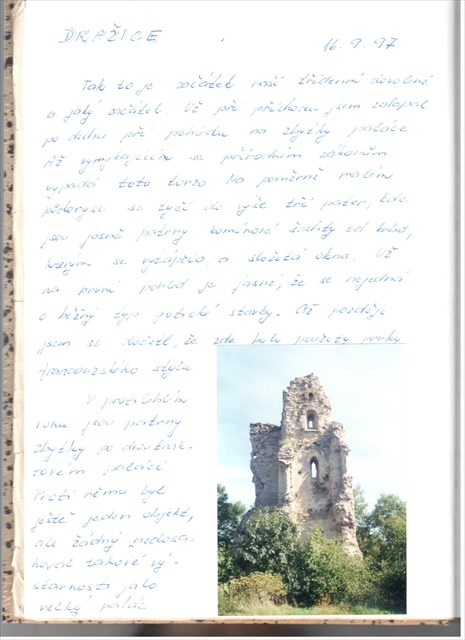 DRAŽICE
16. 9. 97
Tak to je začátek naší třídenní dovolené
a jaký začátek. Už při příchodu jsem zalapal
po dechu při pohledu na zbytky paláce.
Až vymykajícím se přírodním zákonům
vypadá toto torzo. Na poměrně malém
půdorysu se tyčí do výše tří pater, kde
jsou jasně patrny komínové šachty od krbů,
kterými se vytápělo, a složitá okna. Už
na první pohled je jasné, že se nejedná
o běžný typ gotické stavby. Až později
jsem se dočetl, že zde byly použity prvky
francouzského stylu.
V protilehlém
rohu jsou patrny
zbytky po dvoutrak-
tovém paláci.
Proti němu byl
ještě jeden objekt,
ale žádný nedosa-
hoval takové vý-
stavnosti jako
velký palác.